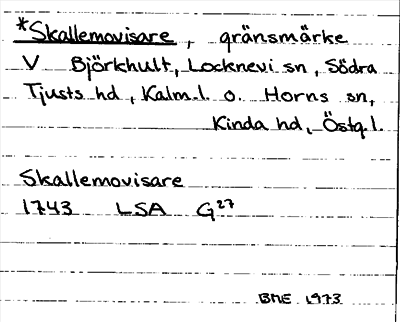 *Skallemovisare, gränsmärke
V Björkhult, Locknevi sn, Södra
Tjusts hd, Kalm.l. o. Horns sn,
Kinda hd, Östg.l.
Skallemovisare
1743 LSA G27
BME 1973